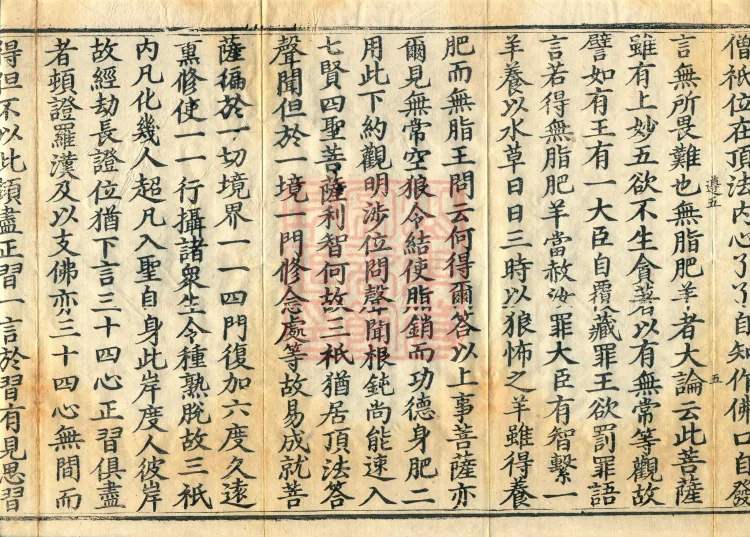 僧祇位在頂法內心了了自知作佛口自發
遵五
五
言無所畏難也無脂肥羊者大論云此菩薩
雖有上妙五欲不生貪著以有無常等觀故
譬如有王有一大臣自覆藏罪王欲罰罪語
言若得無脂肥羊當赦汝罪大臣有智繫一
羊養以水草日日三時以狼怖之羊雖得養
肥而無脂王問云何得爾答以上事菩薩亦
爾見無常空狼令結使脂銷而功德身肥二
用此下約觀明涉位問聲聞根鈍尚能速入
七賢四聖菩薩利智何故三祇猶居頂法答
聲聞但於一境一門修念處等故易成就菩
薩徧於一切境界一一四門復加六度久遠
熏修使一一行攝諸衆生令種熟脫故三祇
內凡化幾人超凡入聖自身此岸度人彼岸
故經劫長證位猶下言三十四心正習俱盡
者頓證羅漢及以支佛亦三十四心無間而
得但不以此頓盡正習一言於習有見思習